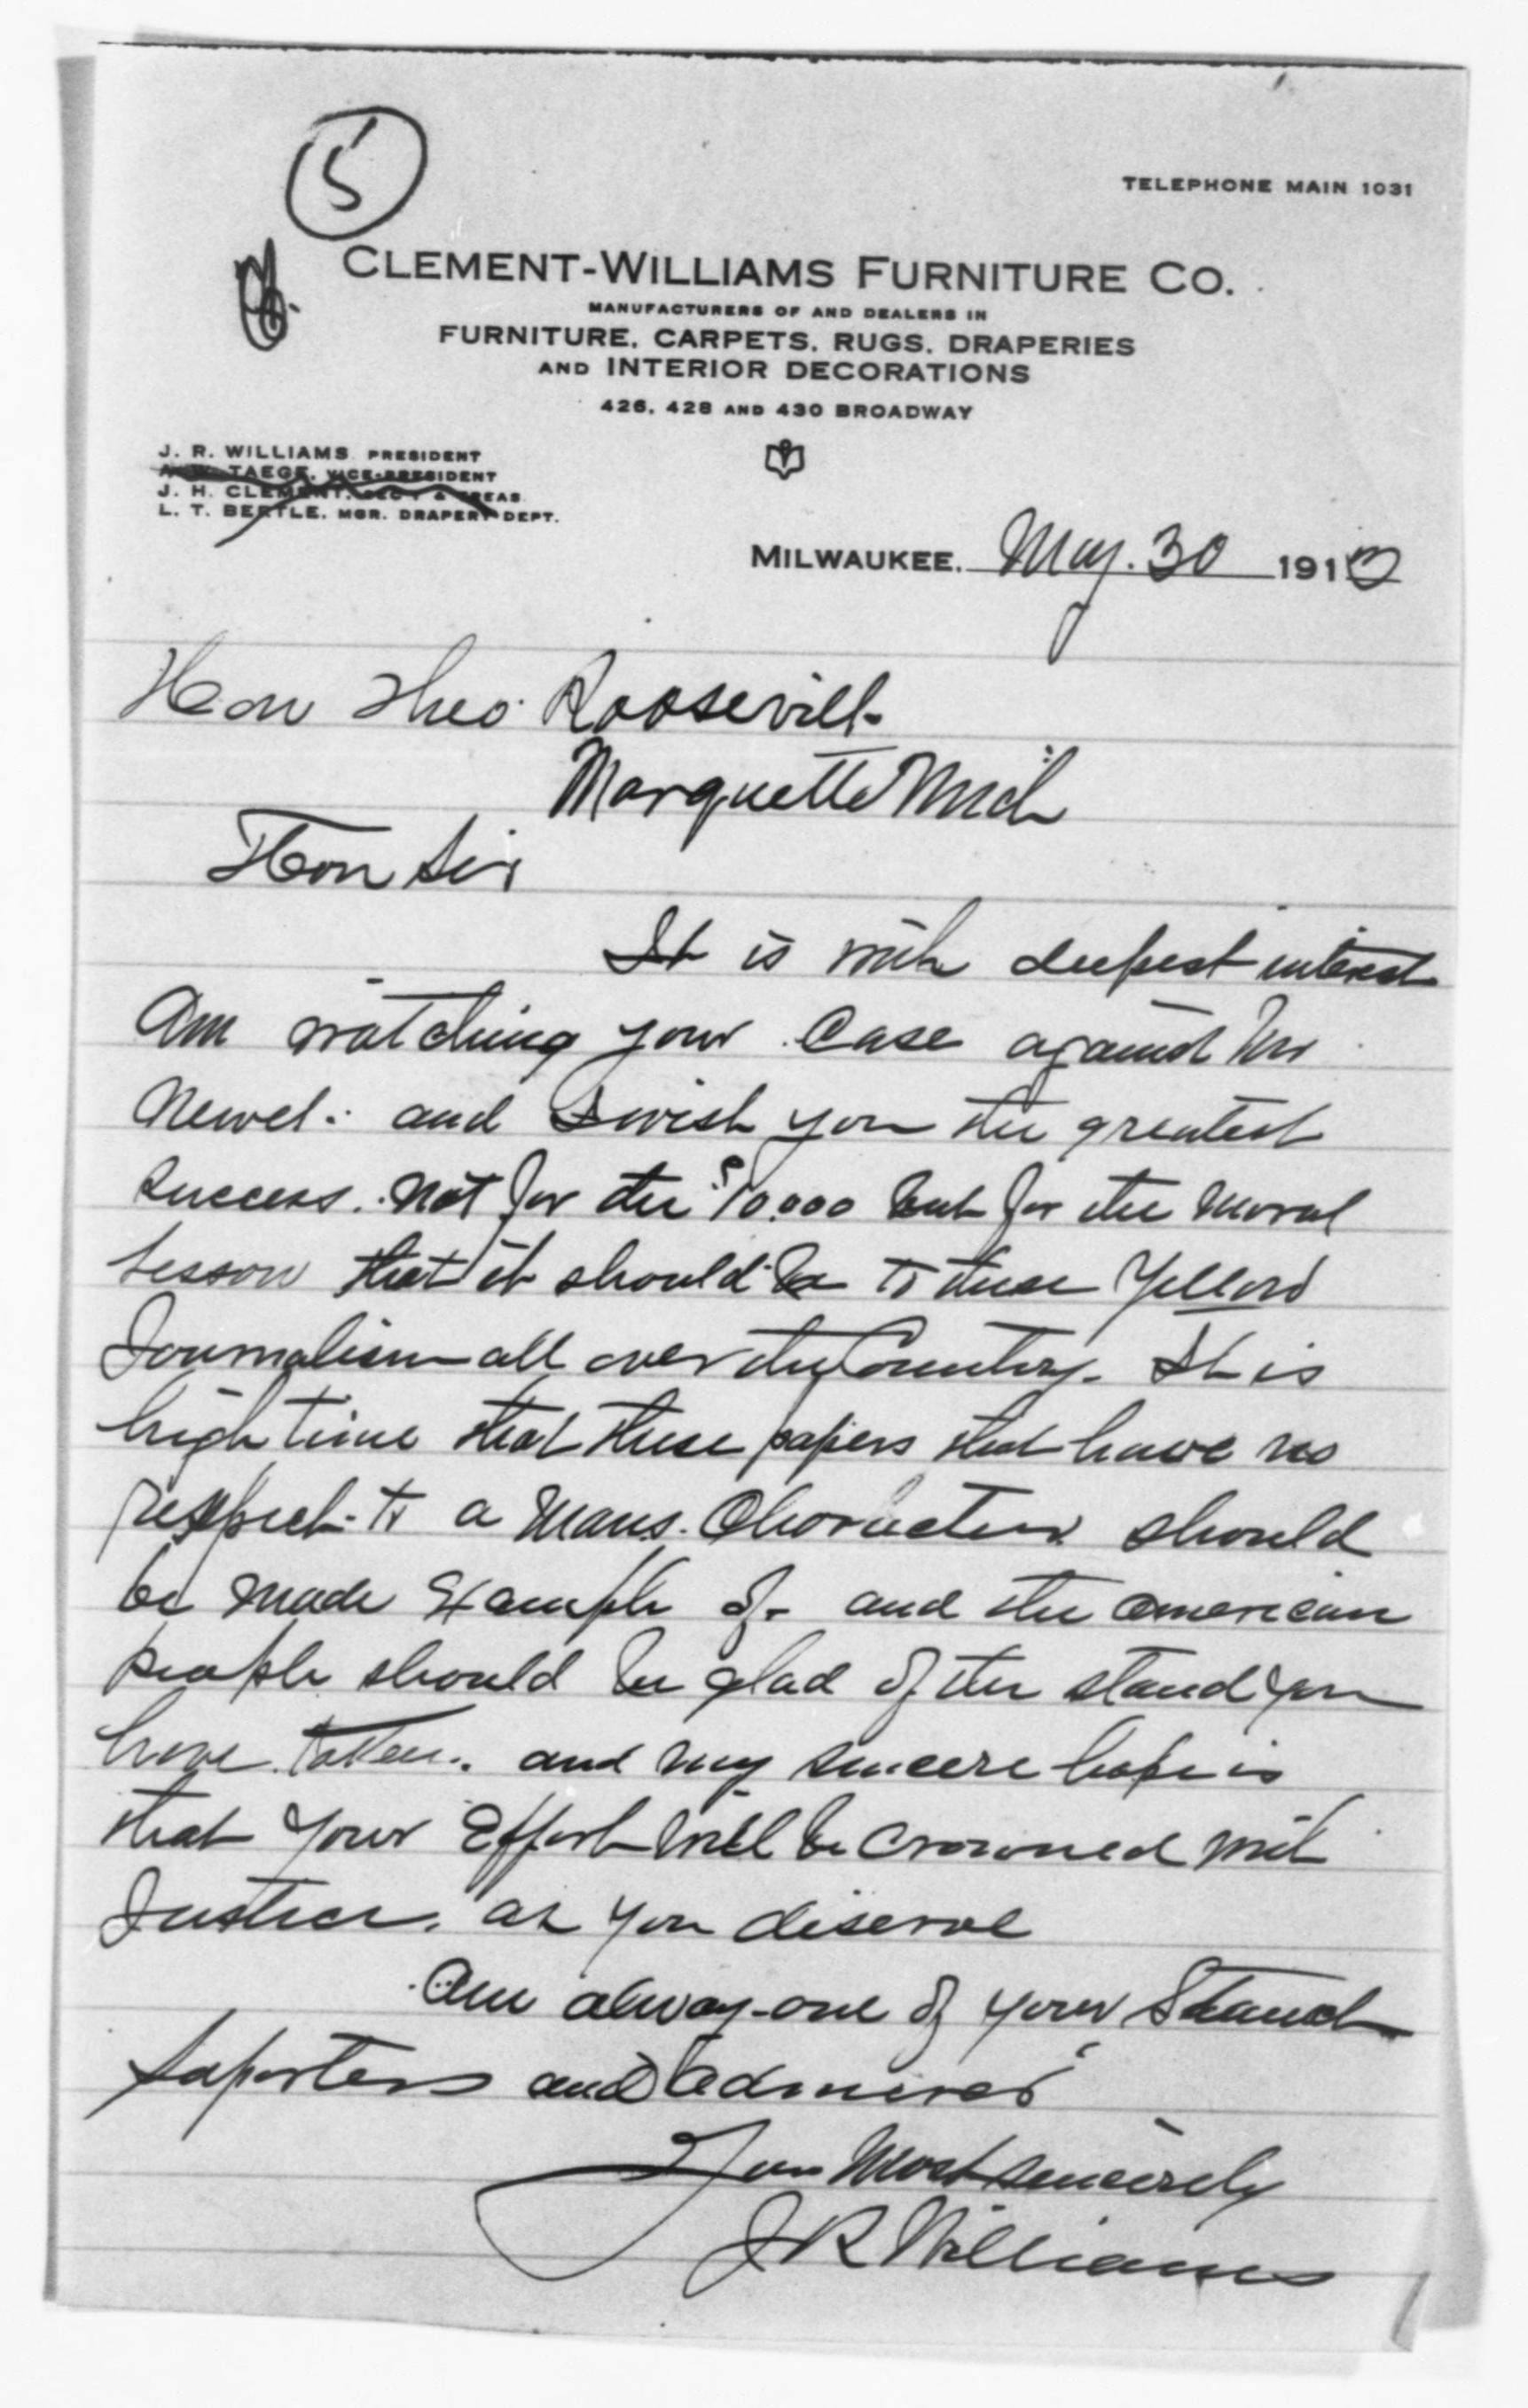 5
TELEPHONE MAIN 1031
CLEMENT-WILLIAMS FURNITURE CO.
MANUFACTURERS OF AND DEALERS IN
FURNITURE, CARPETS, RUGS, DRAPERIES
AND INTERIOR DECORATIONS
426, 428 AND 430 BROADWAY
J. R. WILLIAMS PRESIDENT
TAEGE, VICE-PRESIDENT
J. H. CLEMENT, SECY & TREAS
L. T. BERTLE, MGR. DRAPERY DEPT.
MILWAUKEE, May. 30 1913
Hon Theo. Roosevelt
Marquette Mich
Hon Sir
It is with deepest interest
Am watching your Case against Mr
Newel. and I wish you the greatest
success. Not for the $10.000 but for the Moral
Lesson that it should be to these Yellow
Journalism all over the Country. It is
high time that these papers that have no
respect to a Mans. Character should
be made Example of. and the American
people should be glad of the stand you
have taken. and my sincere hope is
that your Effort will be crowned with
Justice. as you diserve
Am alway one of your Staunch
Suporters and Admirer
Your Most sincerely
J R Williams